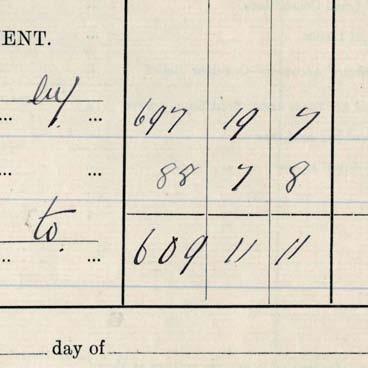 ENT.
by
... ... 697 19 7
... 88 7 8
to
... ... 609 11 11
day of